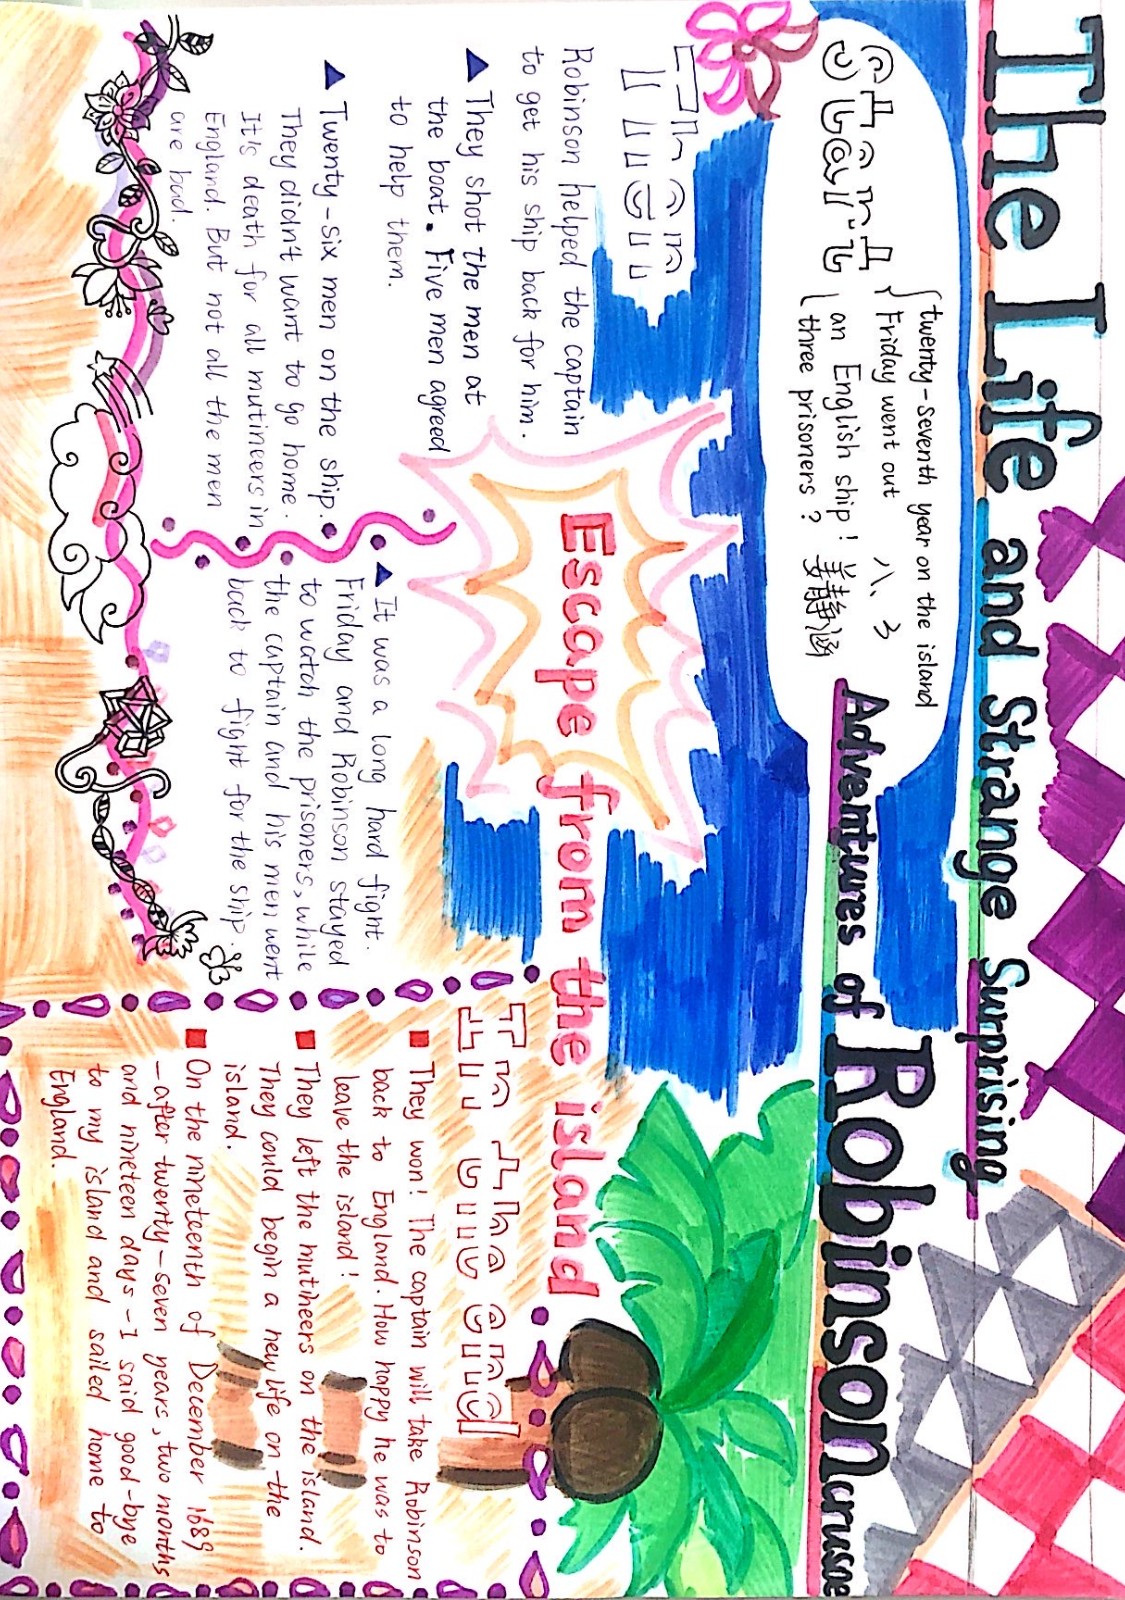 The Life and Strange Surprising
Adventures of Robinson Crusoe
Start
twenty-seventh year on the island
Friday went out
an English ship!
three prisoners?
八、3
姜静涵
Escape from the island
Then
Robinson helped the captain
to get his ship back for him.
They shot the men at
the boat. Five men agreed
to help them.
Twenty-six men on the ship.
They didn't want to go home.
It's death for all mutineers in
England. But not all the men
are bad.
It was a long hard fight.
Friday and Robinson stayed
to watch the prisoners, while
the captain and his men went
back to fight for the ship.
In the end
They won! The captain will take Robinson
back to England. How happy he was to
leave the island!
They left the mutineers on the island.
They could begin a new life on the
island.
On the nineteenth of December 1689
-after twenty-seven years, two months
and nineteen days-I said good-bye
to my island and sailed home to
England.